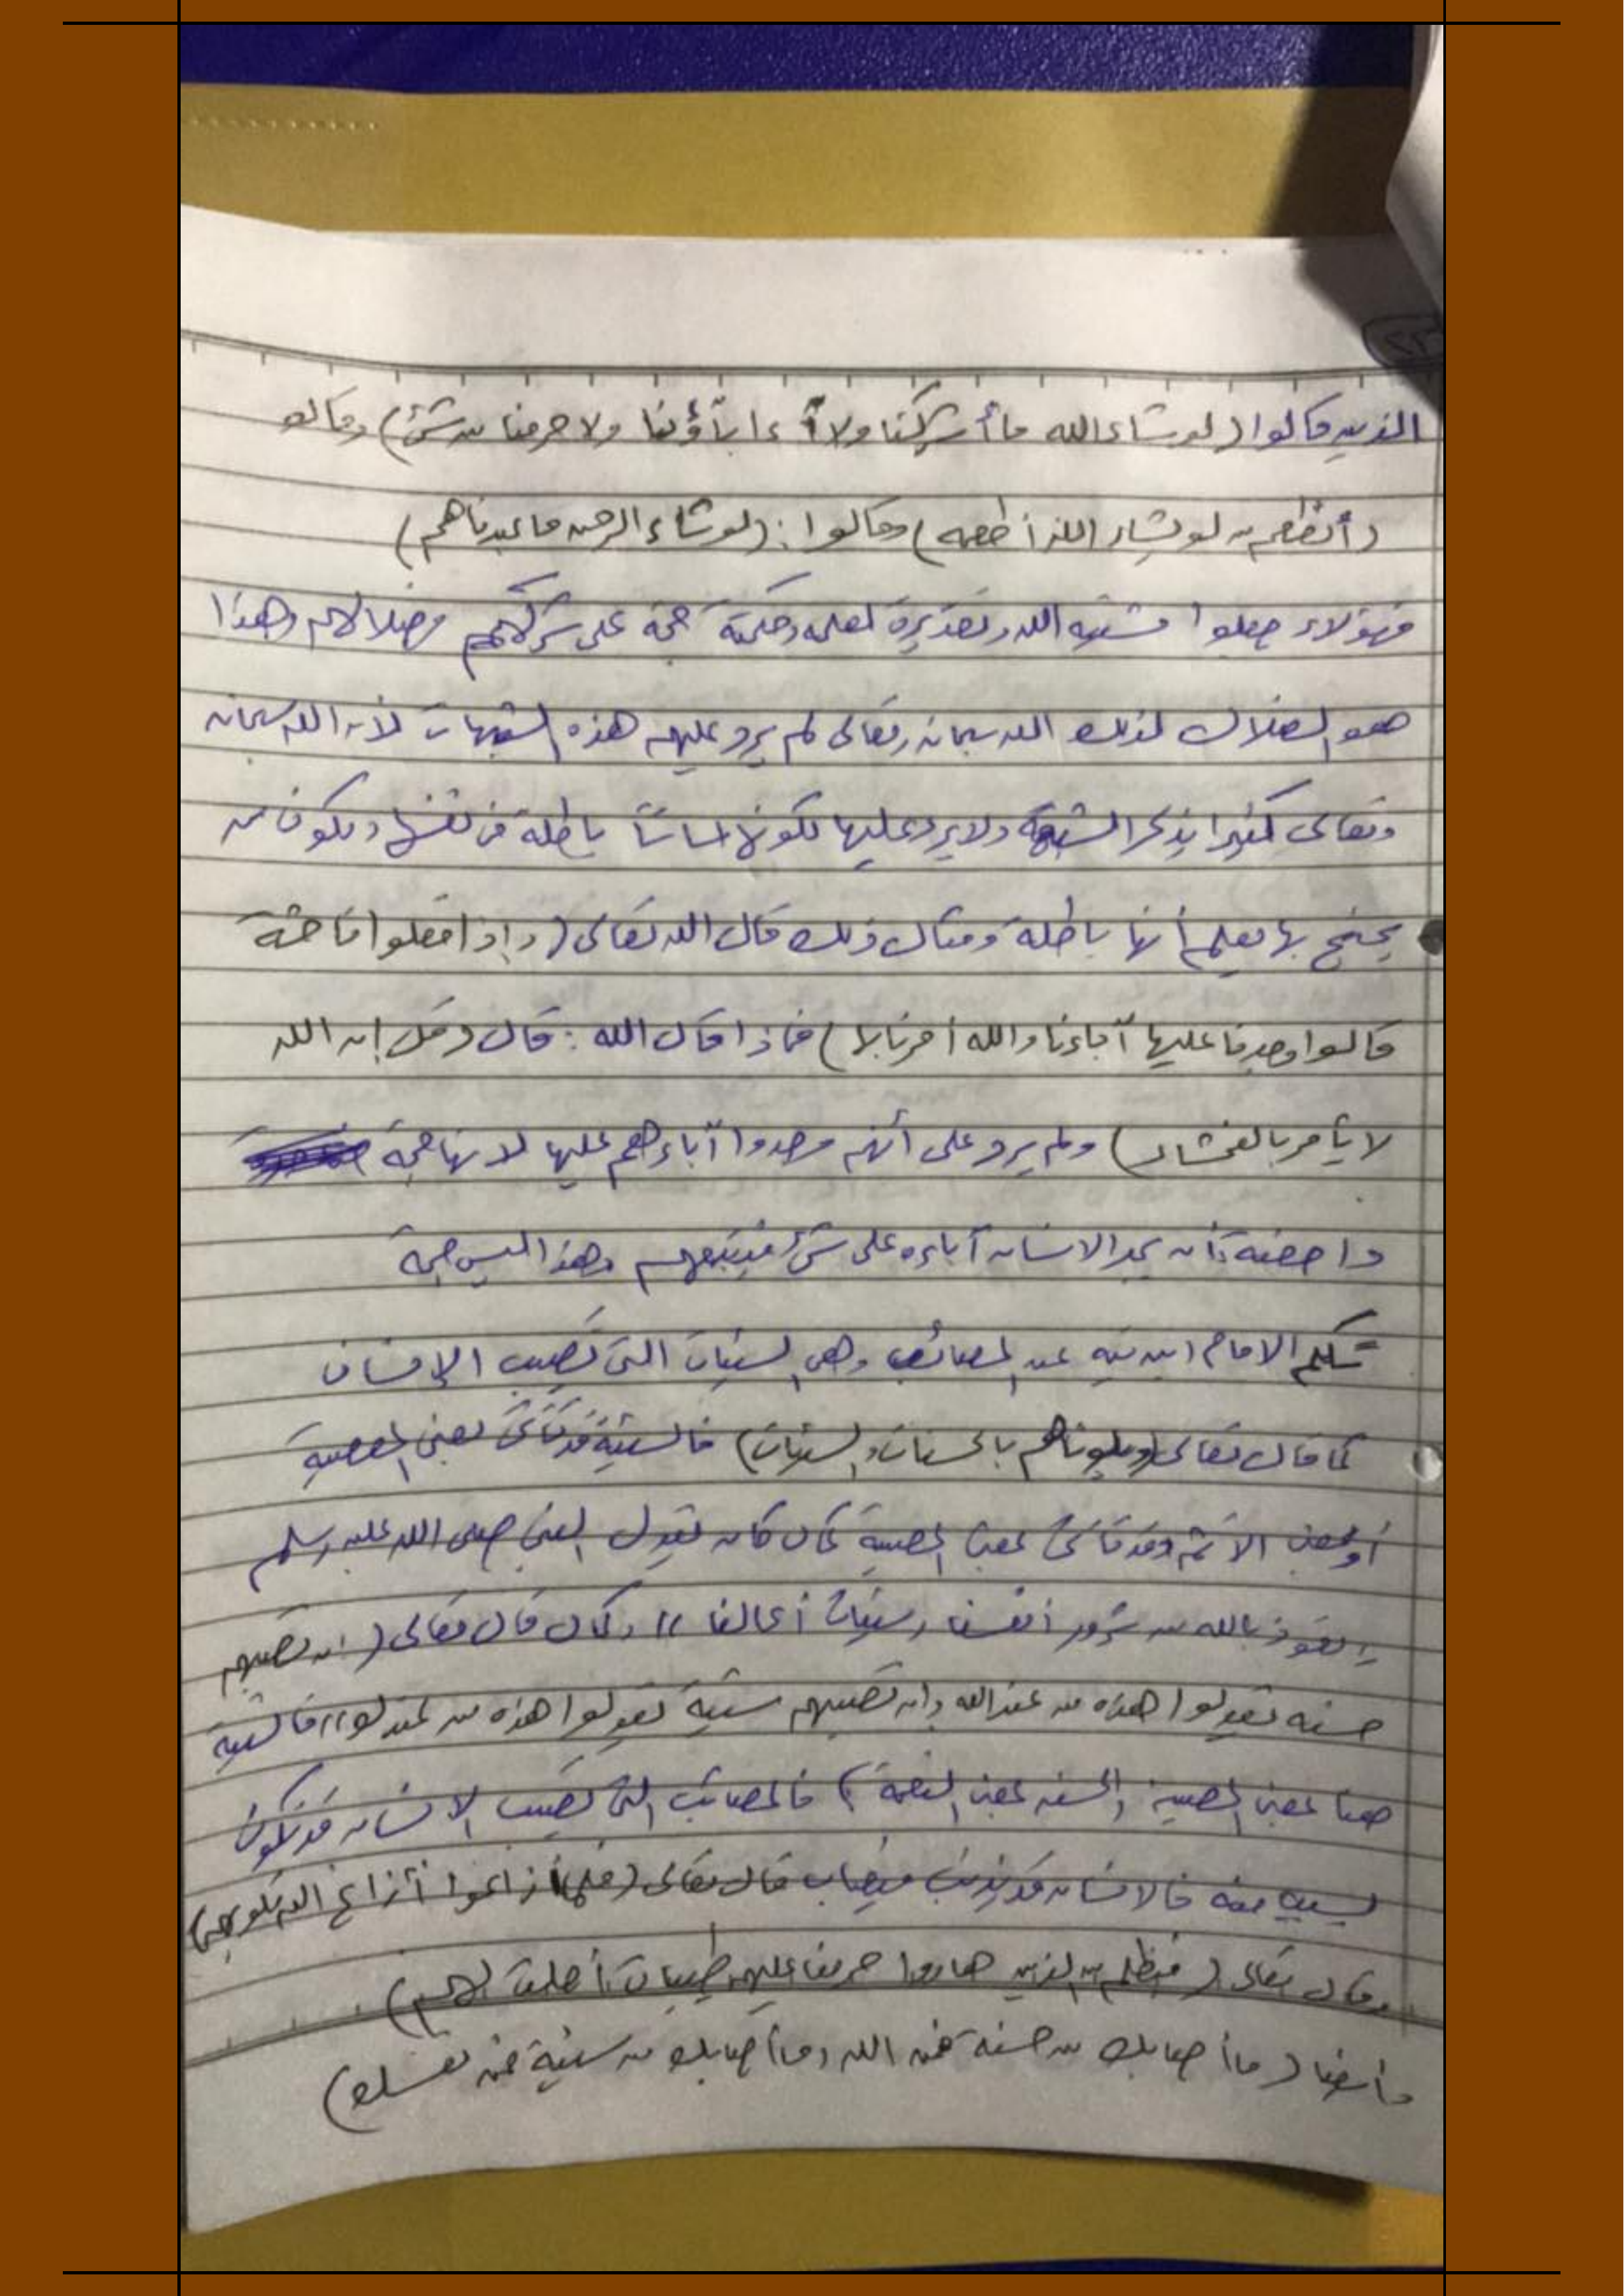 الذين قالوا (لو شاء الله ما أشركنا ولا ءاباؤنا ولا حرمنا من شئ) وقالو
(أنطعم من لو يشاء الله أطعمه) وقالوا: (لو شاء الرحمن ما عبدناهم)
فهؤلاء جعلوا مشيئه الله وتقديره لعلمه وحكمته حجة على شركهم وضلالهم وهذا
هو الضلال لذلك الله سبحانه وتعالى لم يرد عليهم هذه الشبهات لأن الله سبحانه
وتعالى كثيرا يذكر الشبهة ولا يرد عليها لكونها اساساً باطلة في نفسها ويكون من
يحتج بها يعلم أنها باطلة ومثال ذلك قال الله تعالى (وإذا فعلوا فاحشة
قالوا وجدنا عليها آباءنا والله أمرنا بها) فماذا قال الله: قال (قل إن الله
لا يأمر بالفحشاء) ولم يرد على أنهم وجدوا آباءهم عليها لانها حجة
داحضة، أن يجد الانسان آباءه على شئ فيتبعهم وهذا ليس حجة
تكلم الامام ابن تيميه عن المصائب وهي السيئات التى تصيب الإنسان
كما قال تعالى (وبلوناهم بالحسنات والسيئات) فالسيئة قد تأتى بمعنى المعصية
أو بمعنى الاثم وقد تأتى بمعنى المصيبة كما كان يقول النبى صلى الله عليه وسلم
"نعوذ بالله من شرور أنفسنا وسيئات أعمالنا" وكما قال تعالى (ان تصبهم
حسنه يقولوا هذه من عند الله وان تصبهم سيئة يقولوا هذه من عندك) فالسيئة
هنا بمعنى المصيبة والحسنه بمعنى النعمة) فالمصائب التى تصيب الانسان قد تكون
بسببه فالانسان قد يذنب فيصاب قال تعالى (فلما زاغوا أزاغ الله قلوبهم)
وقال تعالى (فبظلم من الذين هادوا حرمنا عليهم طيبات أحلت لهم)
وأيضا (ما أصابك من حسنة فمن الله وما أصابك من سيئة فمن نفسك)